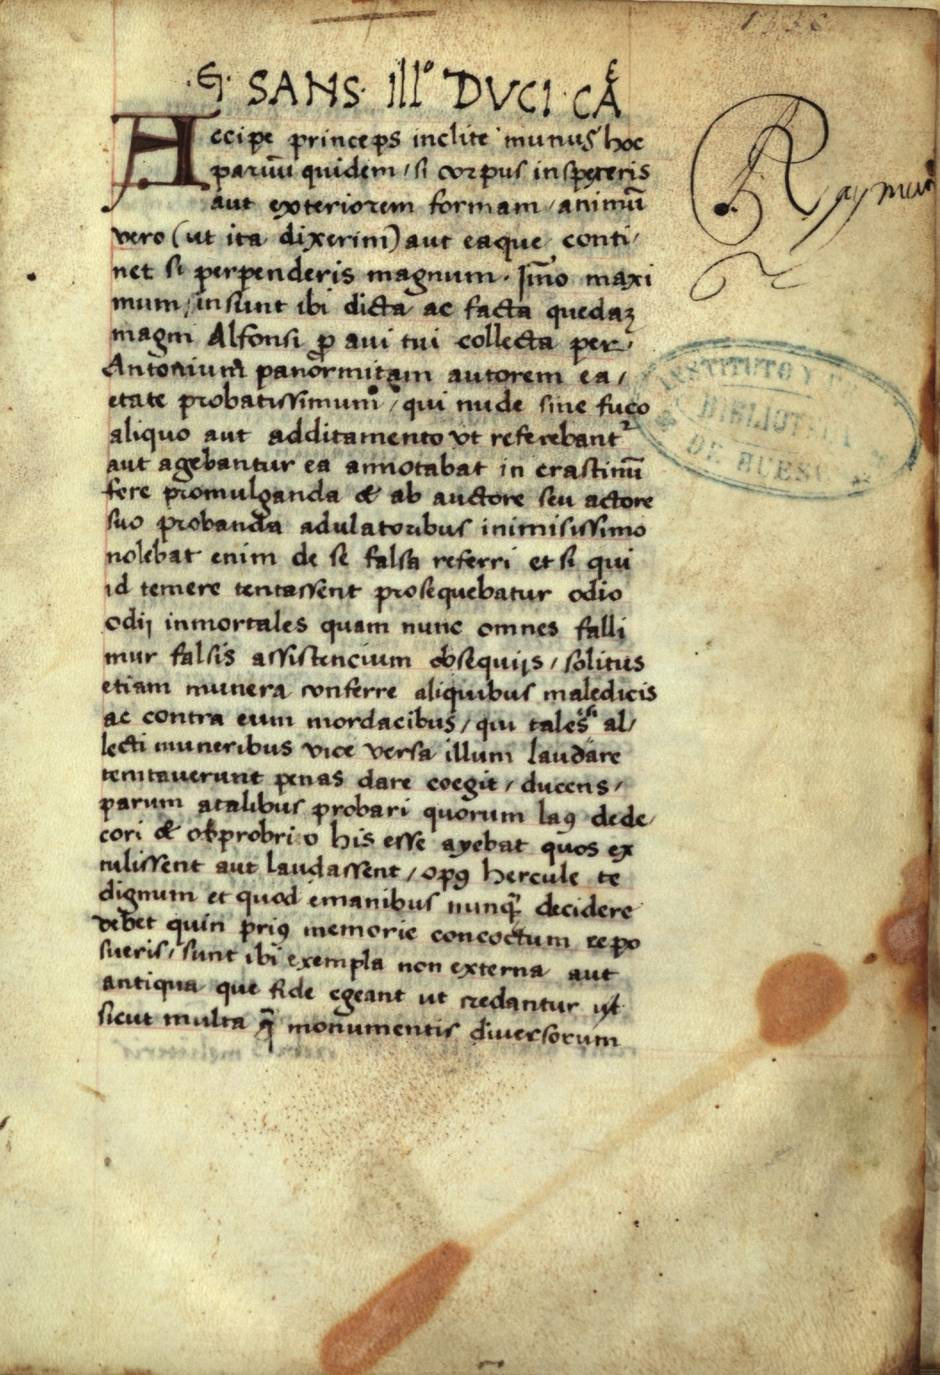 ·G· SANS· Illº DVCI CĀ
Accipe princeps inclite munus hoc
paruū quidem / si corpus inspexeris
aut exteriorem formam / animū
vero (ut ita dixerim) aut eaque conti/
net si perpenderis magnum. Īmo maxi
mum / insunt ibi dicta ac facta quedaʒ
magni Alfonsi ꝓ aui tui collecta per
Antonium panormitam autorem ea /
etate probatissimum / qui nude sine fuco
aliquo aut additamento vt referebant᷑
aut agebantur ea annotabat in crastinū
fere promulganda & ab auctore seu actore
suo probanda adulatoribus inimisissimo
nolebat enim de se falsa referri et si qui
id temere tentassent prosequebatur odio
odij inmortales quam nunc omnes falli
mur falsis assistencium obsequijs / solitus
etiam munera conferre aliquibus maledicis
ac contra eum mordacibus / qui tales al/
lecti muneribus vice versa illum laudare
tentauerunt penas dare coegit / ducens /
parum atalibus probari quorum laꝰ dede
cori & obprobrio his esse ayebat quos ex
tulissent aut laudassent / opꝰ hercule te
dignum et quod emanibus nunq̄ decidere
debet quin priꝰ memorie concoctum repo
sueris / sunt ibi exempla non externa aut
antiqua que fide egeant ut credantur ut
sicut multa q̄ monumentis diuersorum
Raymun
INSTITUTO
BIBLIOTECA
DE HUESCA